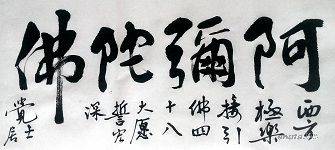 阿彌陀佛
西方
極樂
接引
佛四
十八
大愿
誓宏
深
士
覺居